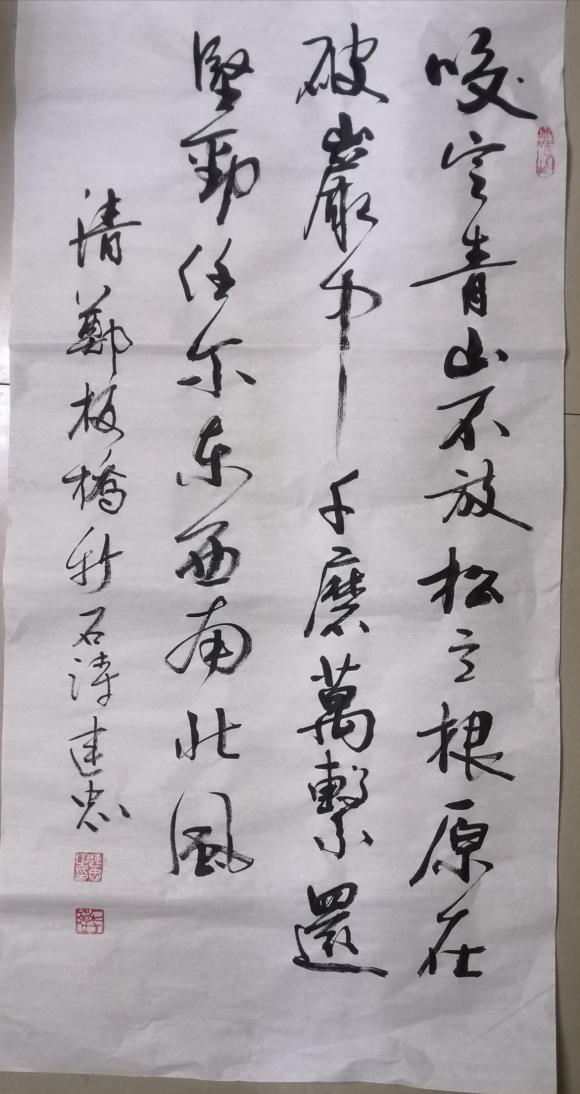 咬定青山不放松立根原在
破巖中千磨萬繫還
堅勁任尔东西南北風
清鄭板橋竹石詩建忠